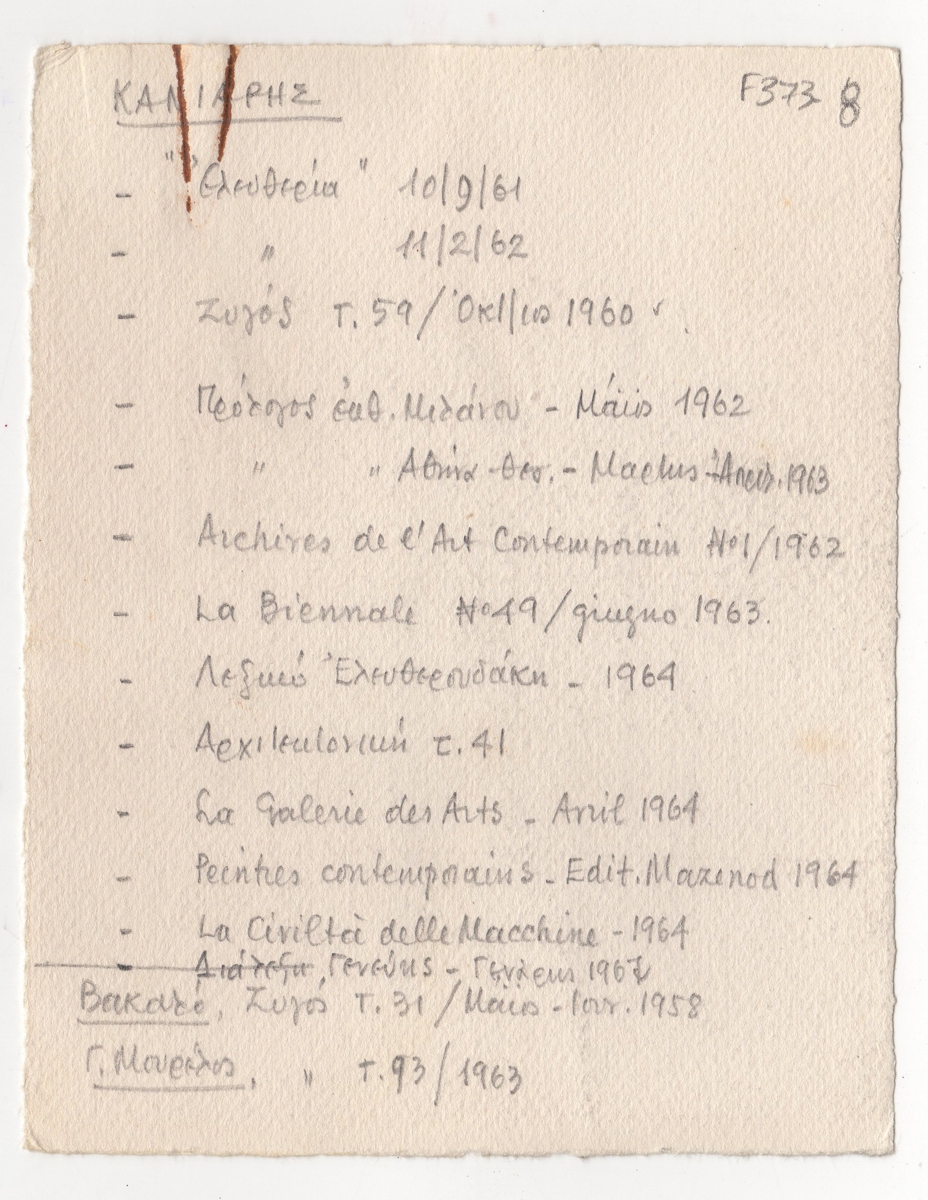 ΚΑΝΙΑΡΗΣ F373 8
- "Ἐλευθερία" 10/9/61
- " 11/2/62
- Ζυγός τ. 59/Ὀκτ/ιος 1960
- Πρόλογος ἐκθ. Μιλάνου - Μάϊος 1962
- " " Ἀθήνα - Θεσ. - Μάρτιος - Ἀπρίλ. 1963
- Archives de l'Art Contemporain No1/1962
- La Biennale No 49/giugno 1963.
- Λεξικό Ἐλευθερουδάκη - 1964
- Αρχιτεκτονική τ. 41
- La Galerie des Arts - Avril 1964
- Peintres contemporains - Edit. Mazenod 1964
- La Civiltà delle Macchine - 1964
- Διάλεξη, Γενεύης - 1967
Βακαλό, Ζυγός τ. 31/Μάϊος - Ιουν. 1958
Γ. Μουρέλος, " τ. 93/1963